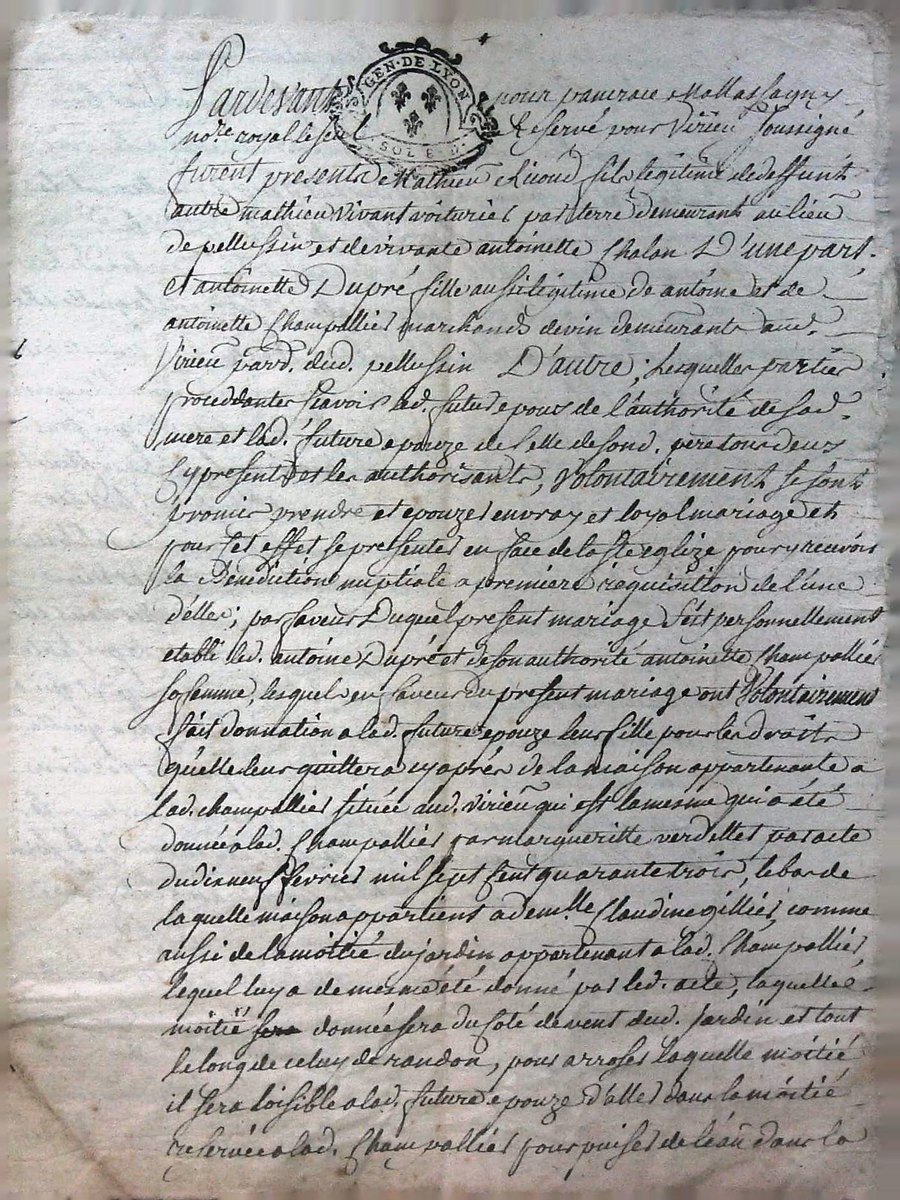 GEN. DE LYON
SOL 6 D.
Pardevant Jean pancrace Mallassagny
no.re royal le seel Reservé pour Virieu soussigné
furent presents Mathieu Rivoud fils legitime de deffunt
autre mathieu vivant voiturier par terre demeurant au lieu
de pellussin et de vivante antoinette Chalon D'une part.
Et antoinette Dupré fille aussi légitime de antoine et de
antoinette Champallier marchands de vin demeurants aud.
Virieu parr. dud. pellussin D'autre; Lesquelles parties
proceddantes scavoir led. futur epoux de l'authorité de sad.
mere et lad. future epouze de celle de sond. pere tous deux
cy presents et les authorisants, volontairement se sont
promis prendre et epouzer en vray et loyal mariage et
pour cet effet se presenter en face de la ste eglize pour y recevoir
la Bénédiction nuptiale a premiere requisition de l'une
d'elles; par faveur Duquel present mariage s'est personnellement
etabli led. antoine Dupré et de son authorité antoinette Champallier
sa femme, lesquels en faveur du present mariage ont Volontairement
fait donnation a lad. future epouze leur fille pour les droits
qu'elle leur quittera cy aprés de la maison appartenante a
lad. champallier située aud. virieu qui est la mesme qui a été
donnée a lad. Champallier par margueritte verdellet par acte
du dix neuf fevrier mil sept cent quarante trois, le bas de
laquelle maison appartient a dem.lle Claudine gillier, comme
aussi de la moitié du jardin appartenant a lad. Champallier,
lequel luy a de mesme été donné par led. acte, laquelle
moitié sera donnée sera du coté de vent dud. Jardin et tout
le long de celuy de randon, pour arroser laquelle moitié
il sera loisible a lad. future epouze d'aller dans la moitié
reservée a lad. Champallier pour puiser de l'eau dans la